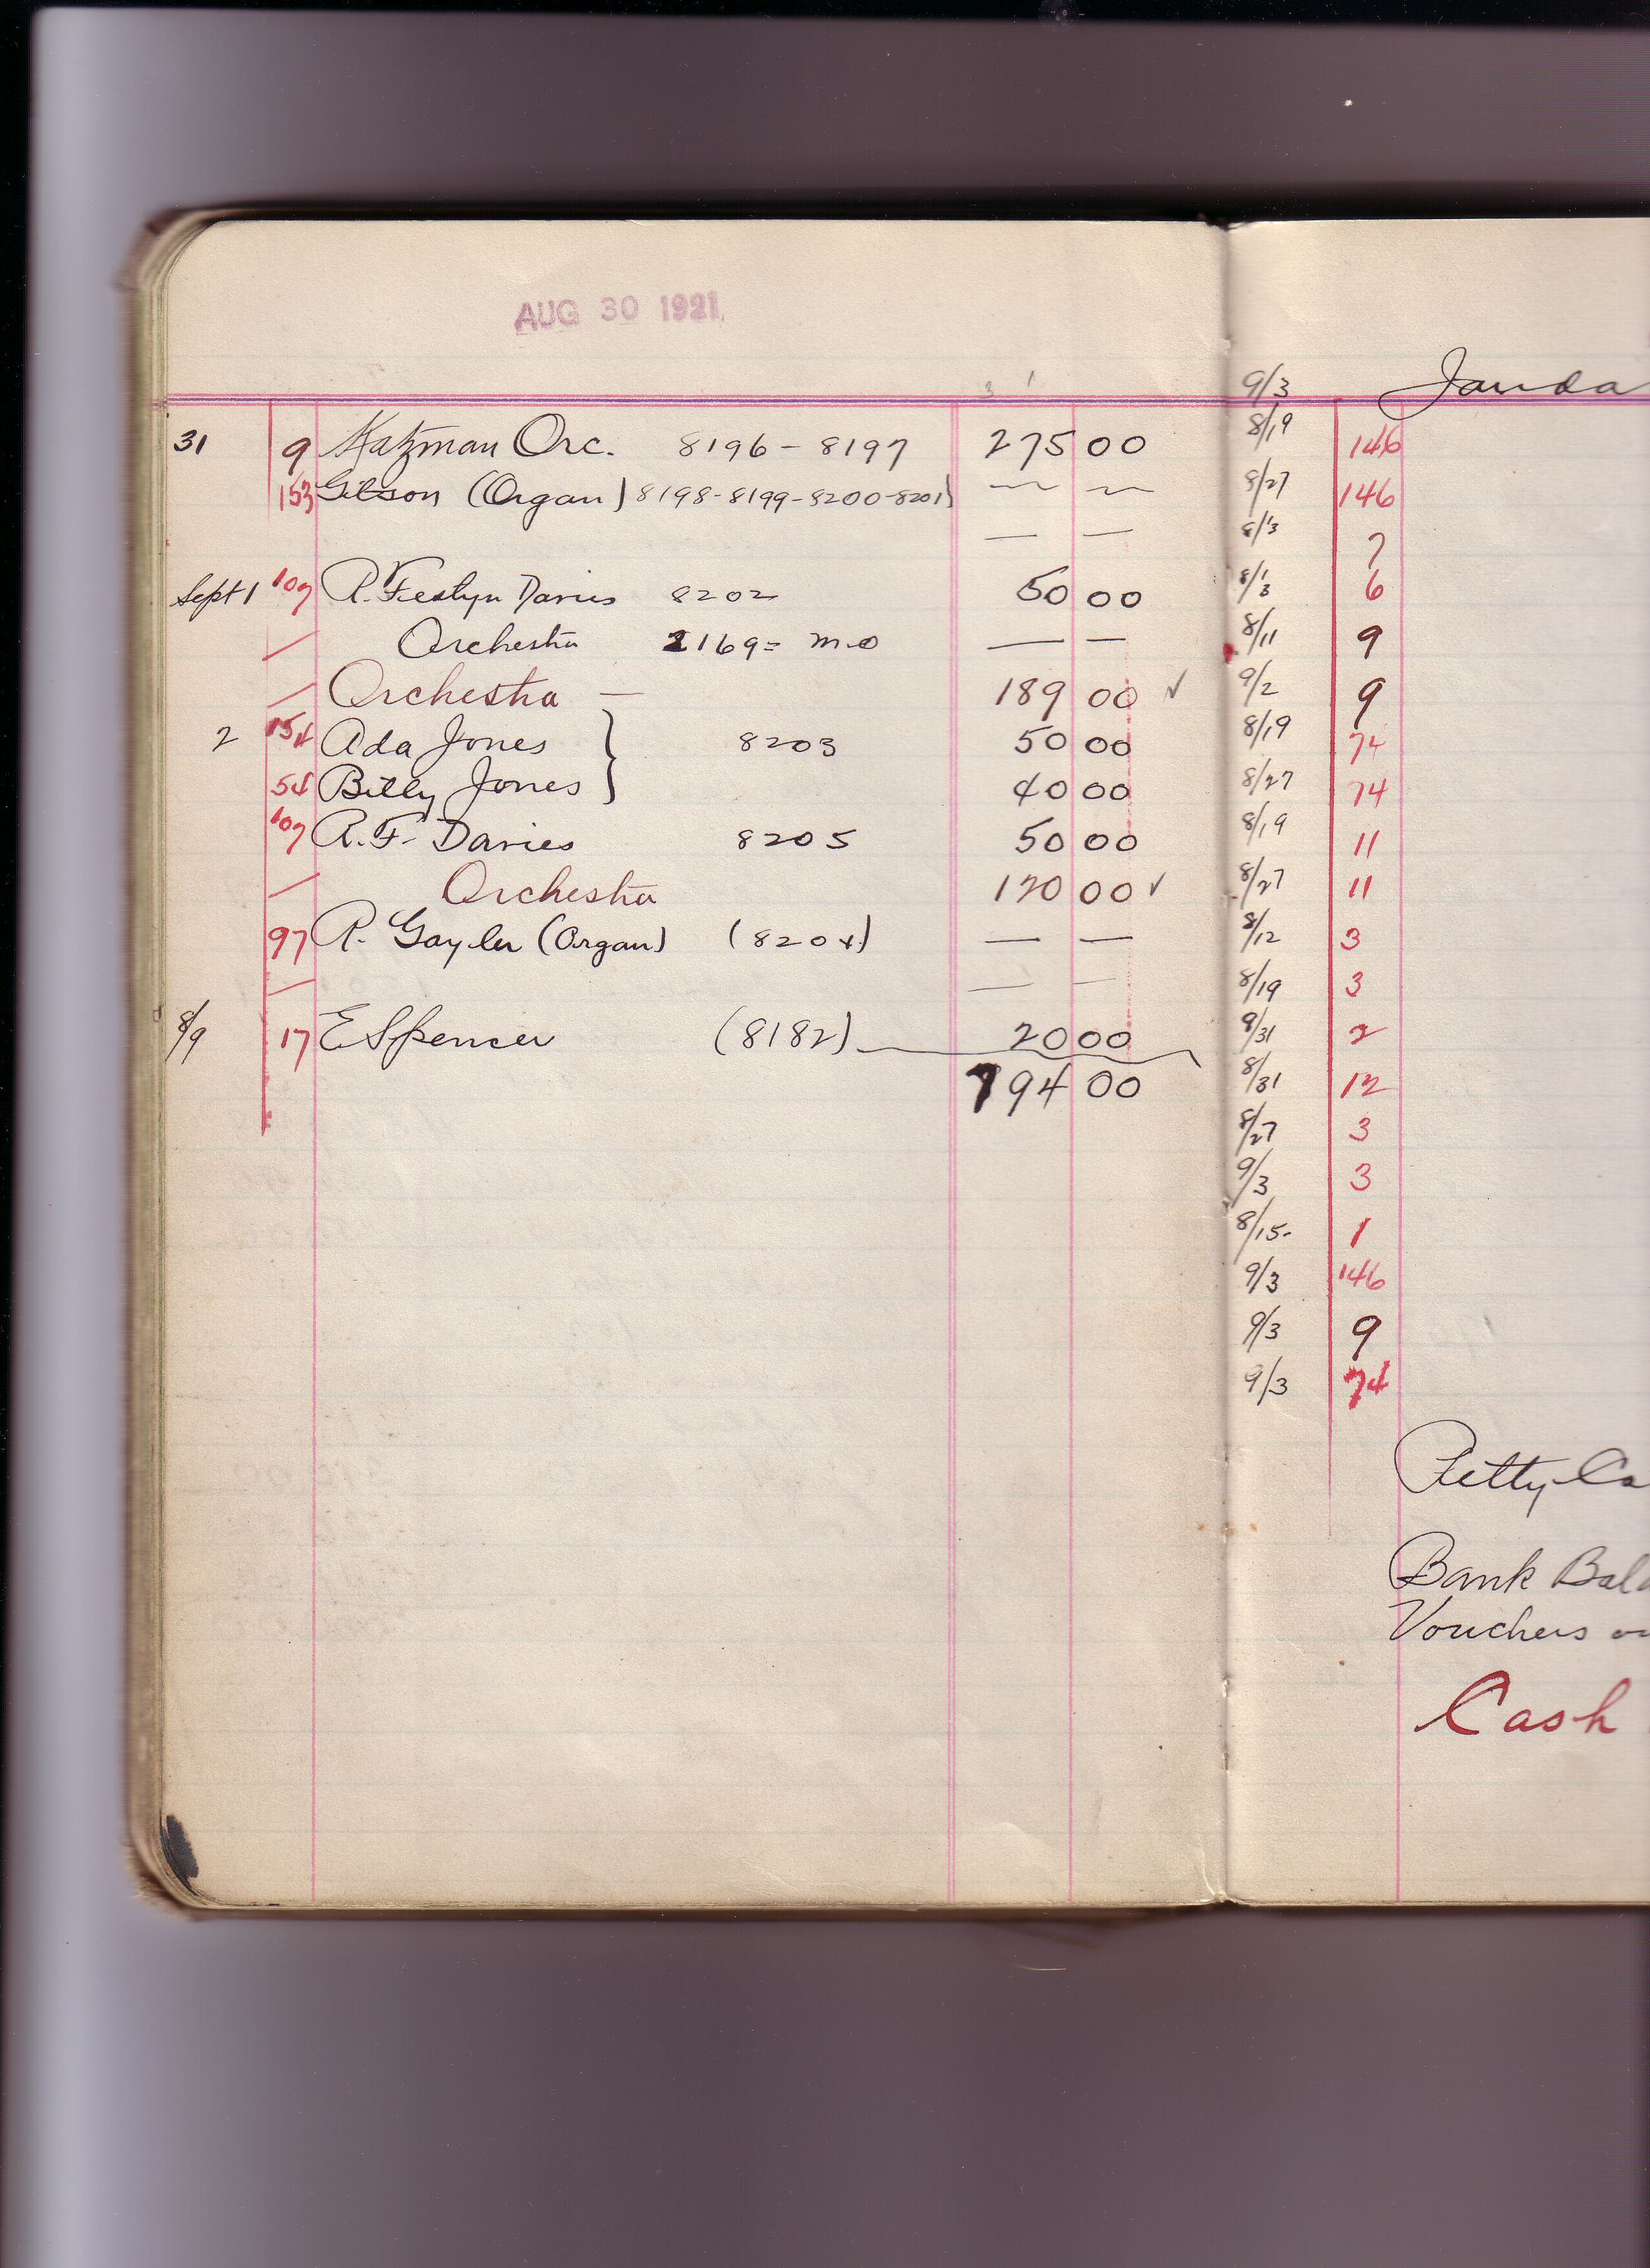 AUG 30 1921
31 9 Katzman Orc. 8196 - 8197 275 00
153 Gibson (Organ) 8198-8199-8200-8201}
— —
Sept 1 107 R. Festyn Davies 8202 50 00
— Orchestra 2169= M.O — —
— Orchestra — 189 00 ✓
2 154 Ada Jones } 8203 50 00
54 Billy Jones } 40 00
107 R.F. Davies 8205 50 00
— Orchestra 120 00 ✓
97 R. Gayler (Organ) (8204) — —
8/9 17 E Spencer (8182) 20 00
794 00
9/3 Janda
8/19 146
8/27 146
8/13 7
8/13 6
8/11 9
9/2 9
8/19 74
8/27 74
8/19 11
8/27 11
8/12 3
8/19 3
8/31 2
8/31 12
8/27 3
9/3 3
8/15- 1
9/3 146
9/3 9
9/3 74
Petty Ca
Bank Bala
Vouchers
Cash